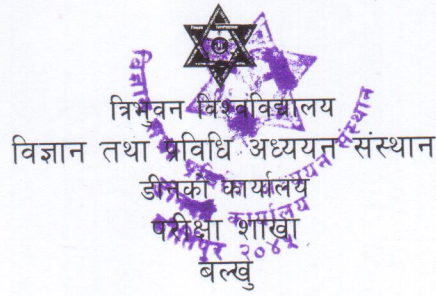 त्रिभुवन विश्वविद्यालय
विज्ञान तथा प्रविधि अध्ययन संस्थान
डीनको कार्यालय
परीक्षा शाखा
बल्खु